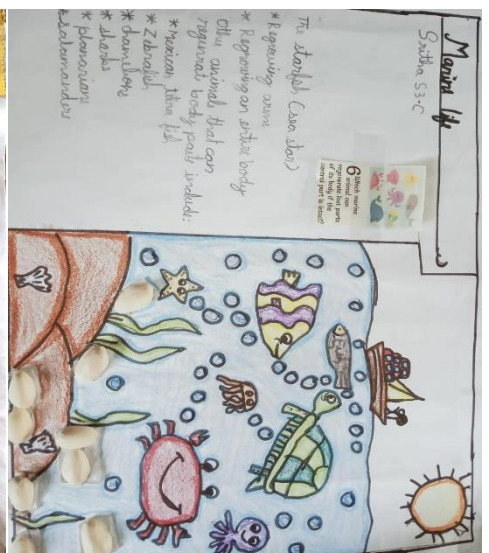 Marind life
Sritha S3-C
6 Which marine
animal can
regenerate lost parts
of its body if the
central part is intact?
The starfish (sea star)
* Regrowing arm
* Regrowing an entire body
Other animals that can
regenrat body parts include:
* Mexican tetra fish
* Zebrafish
* chameleons
* sharks
* planarians
* salamanders